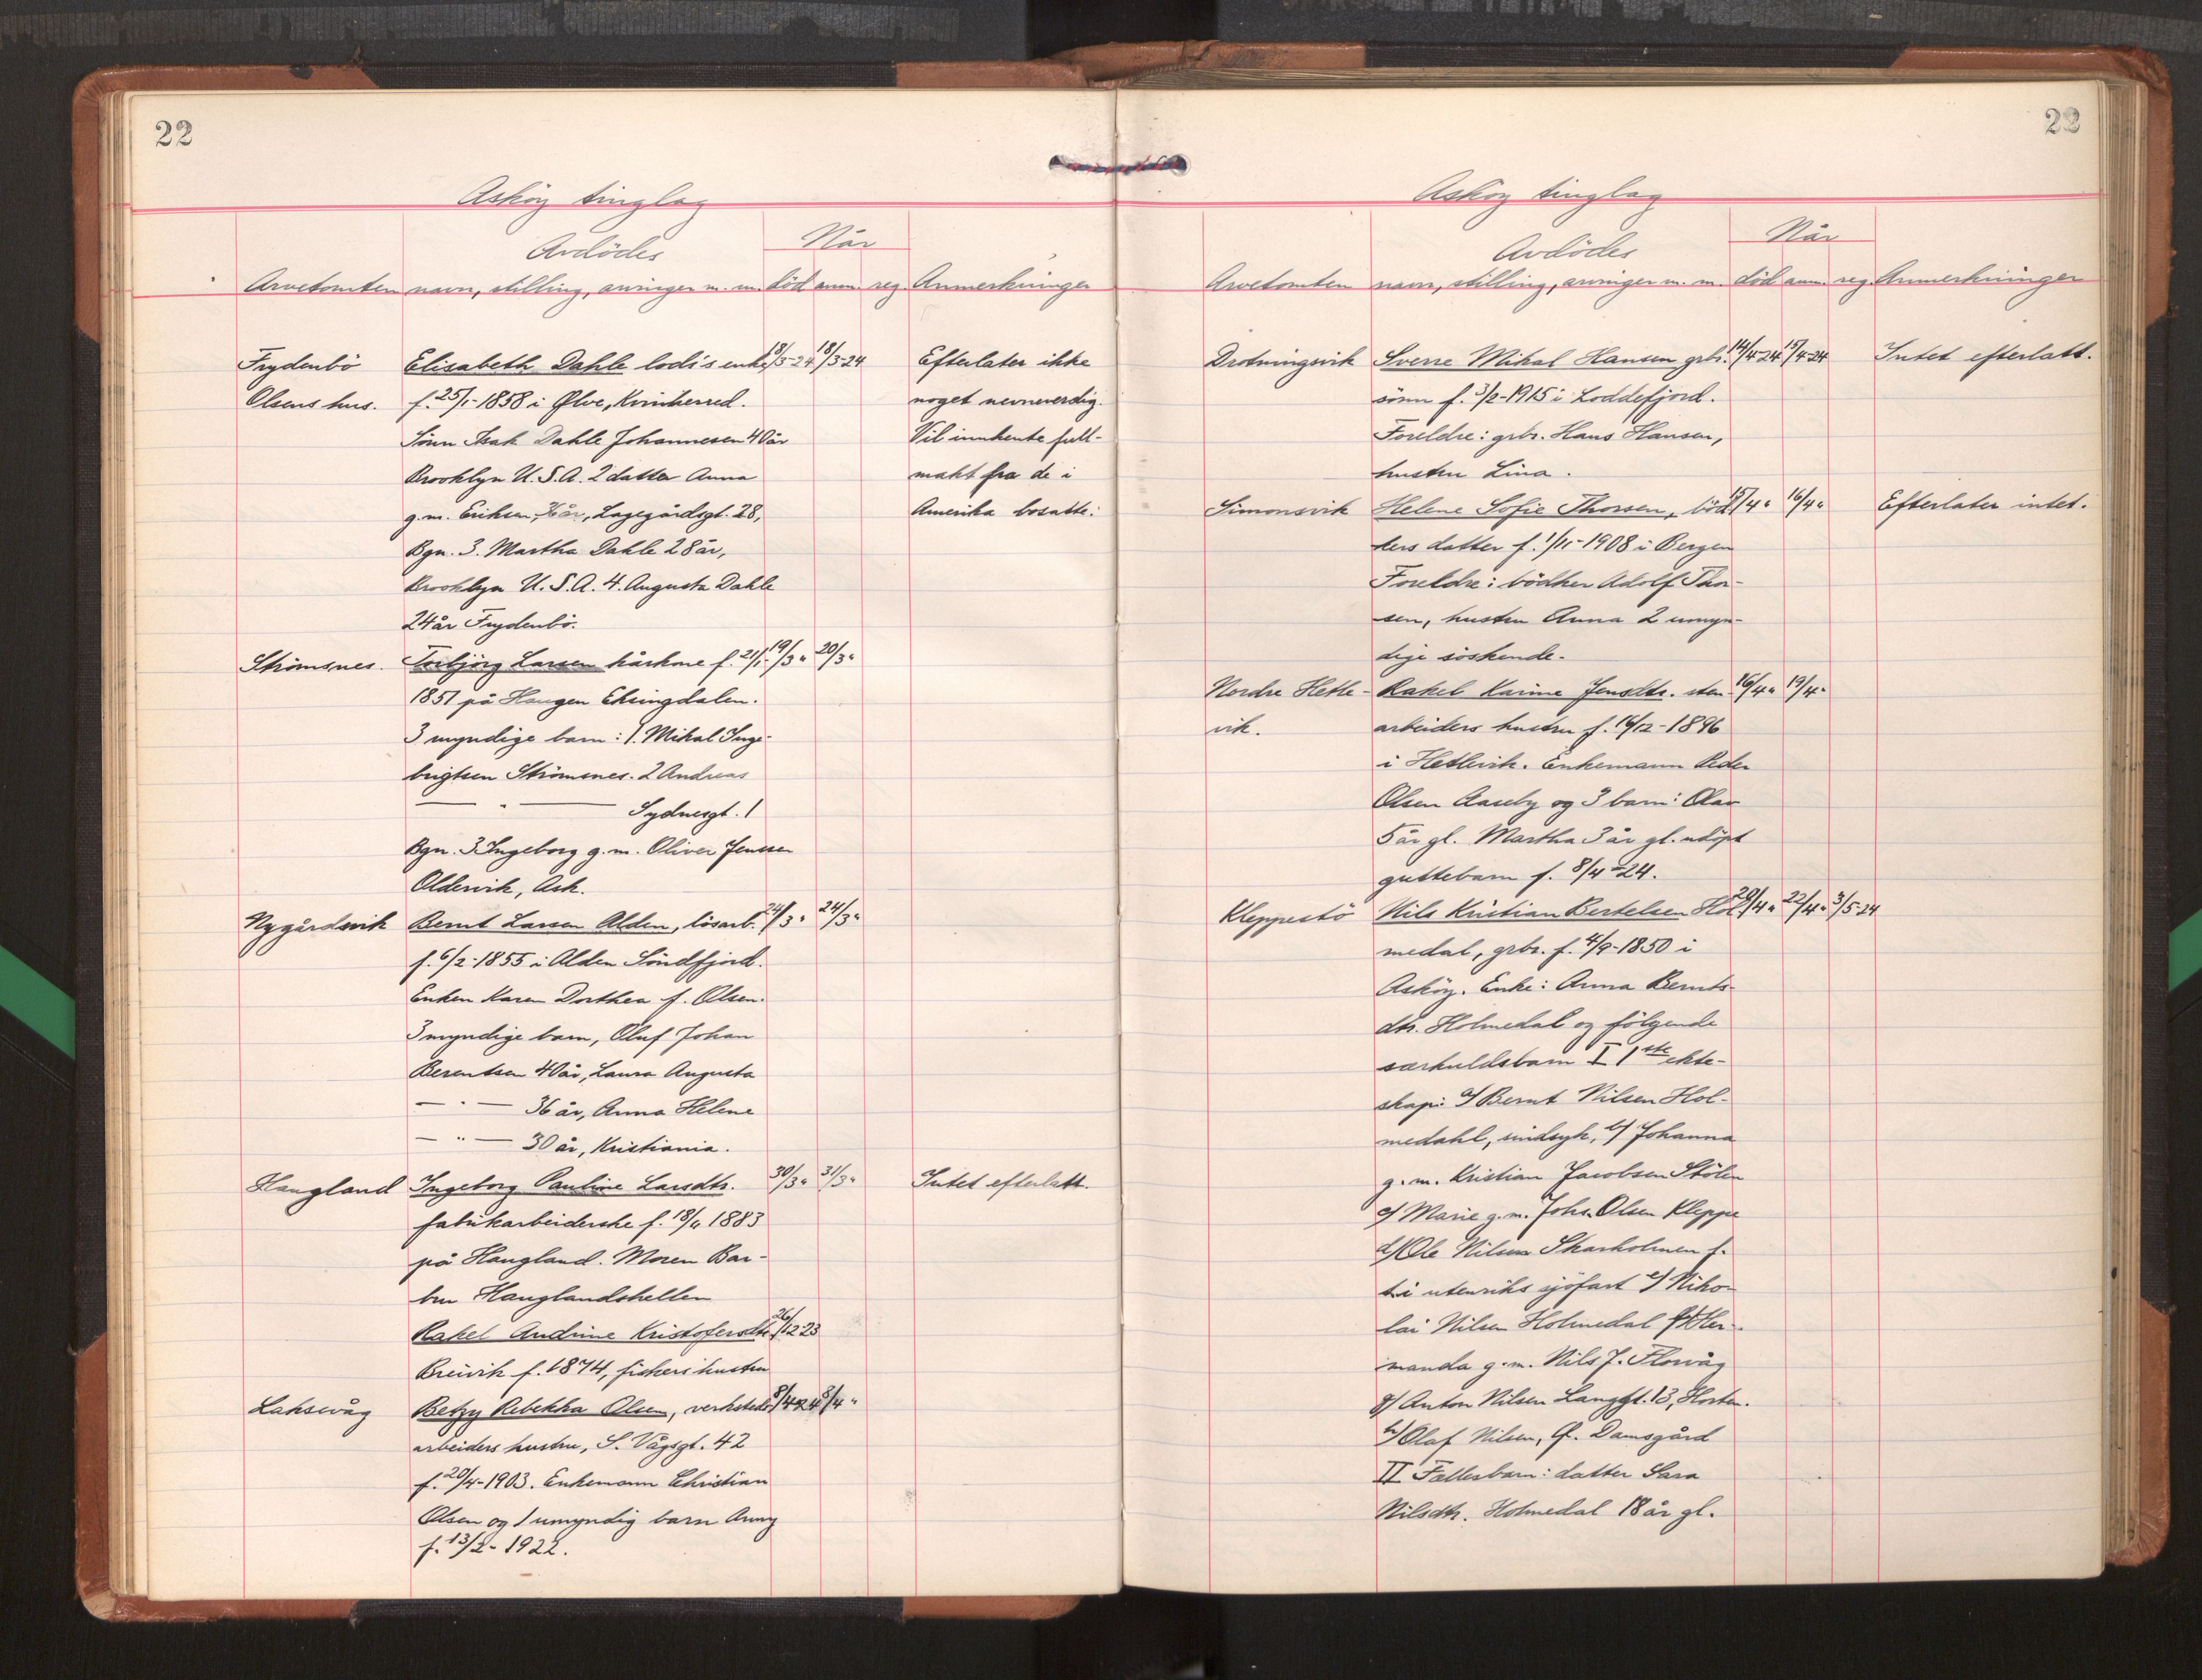 22
Askøy tinglag
Avdödes
Når
Arvetomten navn, stilling, arvinger m. m. död anm. reg. Anmerkninger
Frydenbö Elisabeth Dahle lodis enke 18/3-24 18/3-24 Efterlater ikke
Olsens hus. f. 25/1-1858 i Ølve, Kvinherred. noget nevneverdig.
Sönn Isak Dahle Johannesen 40 år Vil innhente full-
Brooklyn U. S. A. 2 datter Anna makt fra de i
g. m. Eriksen, Lagegårdsgt. 28, Amerika bosatte.
Bgn. 3. Martha Dahle 28 år,
Brooklyn U. S. A. 4. Augusta Dahle
24 år Frydenbö.
Strömsnes. Torbjörg Larsen kårkone f. 21/1- 19/3 " 20/3 "
1851 på Haugen Eksingdalen.
3 myndige barn: 1. Mikal Inge-
brigtsen Strömsnes. 2 Andreas
— " — Sydnesgt. 1
Bgn. 3. Ingeborg g. m. Oliver Jenssen
Oldervik, Ask.
Nygårdsvik Bernt Larsen Alden, lösarb. 24/3 " 24/3 "
f. 6/2-1855 i Alden Söndfjord.
Enken Karen Dorthea f. Olsen.
3 myndige barn, Oluf Johan
Berentsen 40 år, Laura Augusta
— " — 36 år, Anna Helene
— " — 30 år, Kristiania.
Haugland Ingeborg Pauline Larsdtr. 30/3 " 31/3 " Intet efterlatt.
fabrikarbeiderske f. 18/4 1883
på Haugland. Moren Bar-
bru Hauglandshellen
Rakel Andrine Kristofersdtr. 26/12 23
Breivik f. 1874, fiskers hustru
Laksevåg Betzy Rebekka Olsen, verksteds- 8/4-24 8/4 "
arbeiders hustru, S. Vågsgt. 42
f. 20/4-1903. Enkemann Christian
Olsen og 1 umyndig barn Anny
f. 13/2-1922.
22
Askøy tinglag
Avdödes
Når
Arvetomten navn, stilling, arvinger m. m. död anm. reg. Anmerkninger
Drotningsvik Sverre Mikal Hansen grbr. 14/4-24 15/4-24 Intet efterlatt.
sönn f. 3/2-1915 i Loddefjord.
Foreldre: grbr. Hans Hansen,
hustru Lina.
Simonsvik Helene Sofie Thorsen, böd- 15/4 " 16/4 " Efterlater intet.
kers datter f. 1/11-1908 i Bergen
Foreldre: bödker Adolf Thor-
sen, hustru Anna 2 umyn-
dige söskende.
Nordre Hetle- Rakel Karine Jensdtr. sten- 16/4 " 19/4 "
vik. arbeiders hustru f. 14/12-1896
i Hetlevik. Enkemann Peder
Olsen Aaseby og 3 barn: Olav
5 år gl. Martha 3 år gl. udöpt
guttebarn f. 8/4-24.
Kleppestö Nils Kristian Bertelsen Hol- 20/4 " 22/4 " 3/5-24
medal, grbr. f. 4/9-1850 i
Askøy. Enke: Anna Bernts-
dtr. Holmedal og fölgende
særkuldsbarn I 1ste ekte-
skap: a/ Bernt Nilsen Hol-
medahl, sindsyk, b/ Johanna
g. m. Kristian Jacobsen Stölen
c/ Marie g. m. Johs. Olsen Kleppe
d/ Ole Nilsen Skarholmen f.
t. i utenriks sjöfart e/ Niko-
lai Nilsen Holmedal f/ Her-
manda g. m. Nils J. Florvåg
g/ Anton Nilsen Langgt. 13, Horten.
h/ Olaf Nilsen, Damsgård
II Fællesbarn: datter Sara
Nilsdtr. Holmedal 18 år gl.